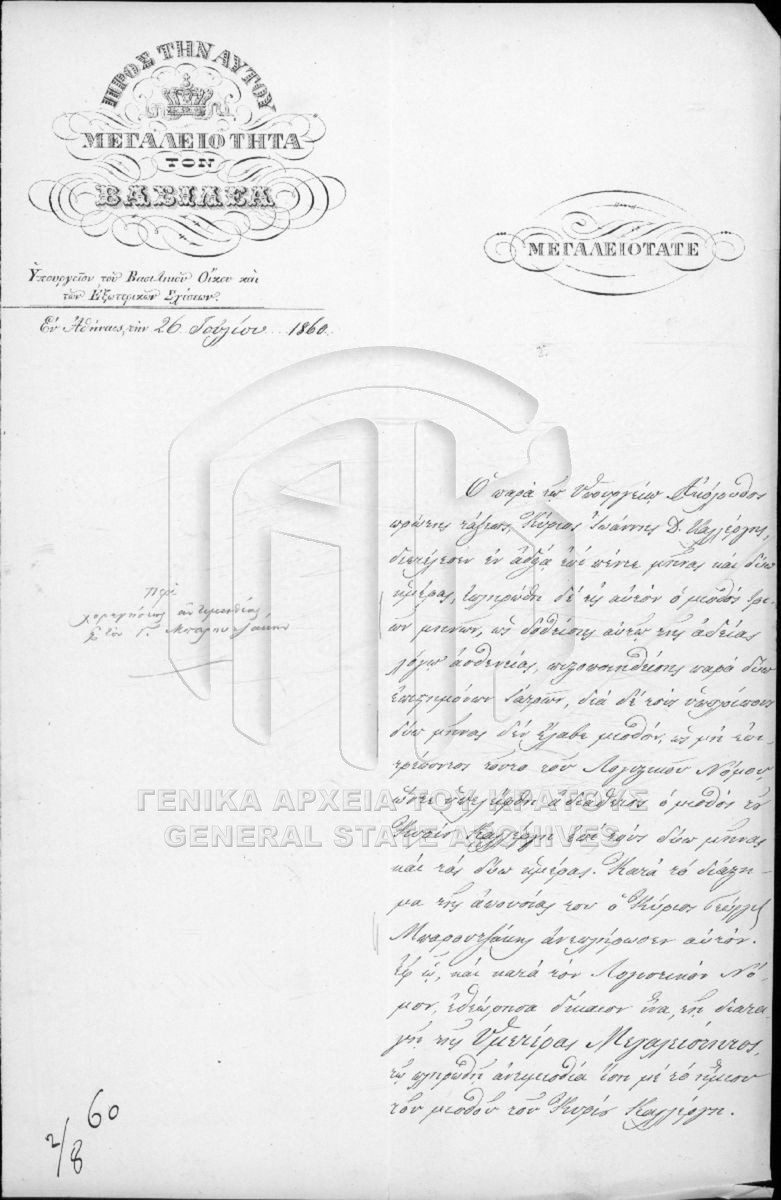 ΠΡΟΣ ΤΗΝ ΑΥΤΟΥ
ΜΕΓΑΛΕΙΟΤΗΤΑ
ΤΟΝ
ΒΑΣΙΛΕΑ
Ὑπουργεῖον τοῦ Βασιλικοῦ Οἴκου καὶ
τῶν Ἐξωτερικῶν Σχέσεων.
Ἐν Ἀθήναις, τὴν 26 Ἰουλίου 1860.
ΜΕΓΑΛΕΙΟΤΑΤΕ
Περὶ
χορηγήσεως ἀντιμισθίας
εἰς τὸν Γ. Μπαρουτζάκην
Ὁ παρὰ τῷ Ὑπουργείῳ Ἀκόλουθος
πρώτης τάξεως, Κύριος Ἰωάννης Δ. Καλλέργης,
διετέλεσεν ἐν ἀδείᾳ ἐπὶ πέντε μῆνας καὶ δύω
ἡμέρας, ἐπληρώθη δὲ εἰς αὐτὸν ὁ μισθὸς τρι-
ῶν μηνῶν, ὡς δοθείσης αὐτῷ τῆς ἀδείας
λόγῳ ἀσθενείας, πιστοποιηθείσης παρὰ δύω
ἐπιστημόνων Ἰατρῶν, διὰ δὲ τοὺς ὑπολοίπους
δύω μῆνας δὲν ἔλαβε μισθόν, ὡς μὴ ἐπι-
τρέποντος τοῦτο τοῦ Λογιστικοῦ Νόμου,
ὥστε ἀδιάθετος ὁ μισθὸς τοῦ
Κυρίου Καλλέργη ἐπὶ τοὺς δύω μῆνας
καὶ τὰς δύω ἡμέρας. Κατὰ τὸ διάστη-
μα τῆς ἀπουσίας του ὁ Κύριος Γεώργιος
Μπαρουτζάκης ἀνεπλήρωσεν αὐτόν.
Ἐφ' ᾧ, καὶ κατὰ τὸν Λογιστικὸν Νό-
μον, ἐθεώρησα δίκαιον ἵνα, τῇ διατα-
γῇ τῆς Ὑμετέρας Μεγαλειότητος,
τῷ πληρωθῇ ἀντιμισθία ἴση μὲ τὸ ἥμισυ
τοῦ μισθοῦ τοῦ Κυρίου Καλλέργη.
2/8 60
ΓΕΝΙΚΑ ΑΡΧΕΙΑ ΤΟΥ ΚΡΑΤΟΥΣ
GENERAL STATE ARCHIVES